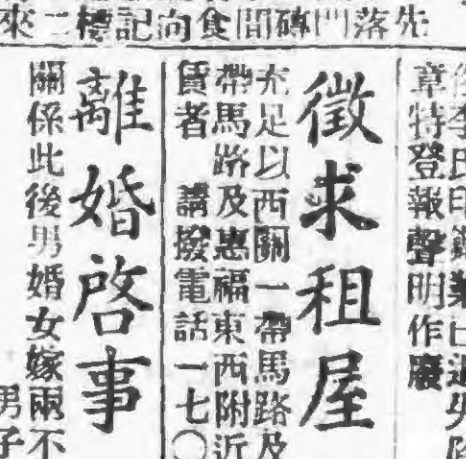 先落門磚間食向記標二來
李氏印鑑業已遺失除
章特登報聲明作廢
徵求租屋
充足以西關一帶馬路及
帶馬路及惠福東西附近
賃者 請撥電話一七〇
離婚啓事
關係此後男婚女嫁兩不
男子